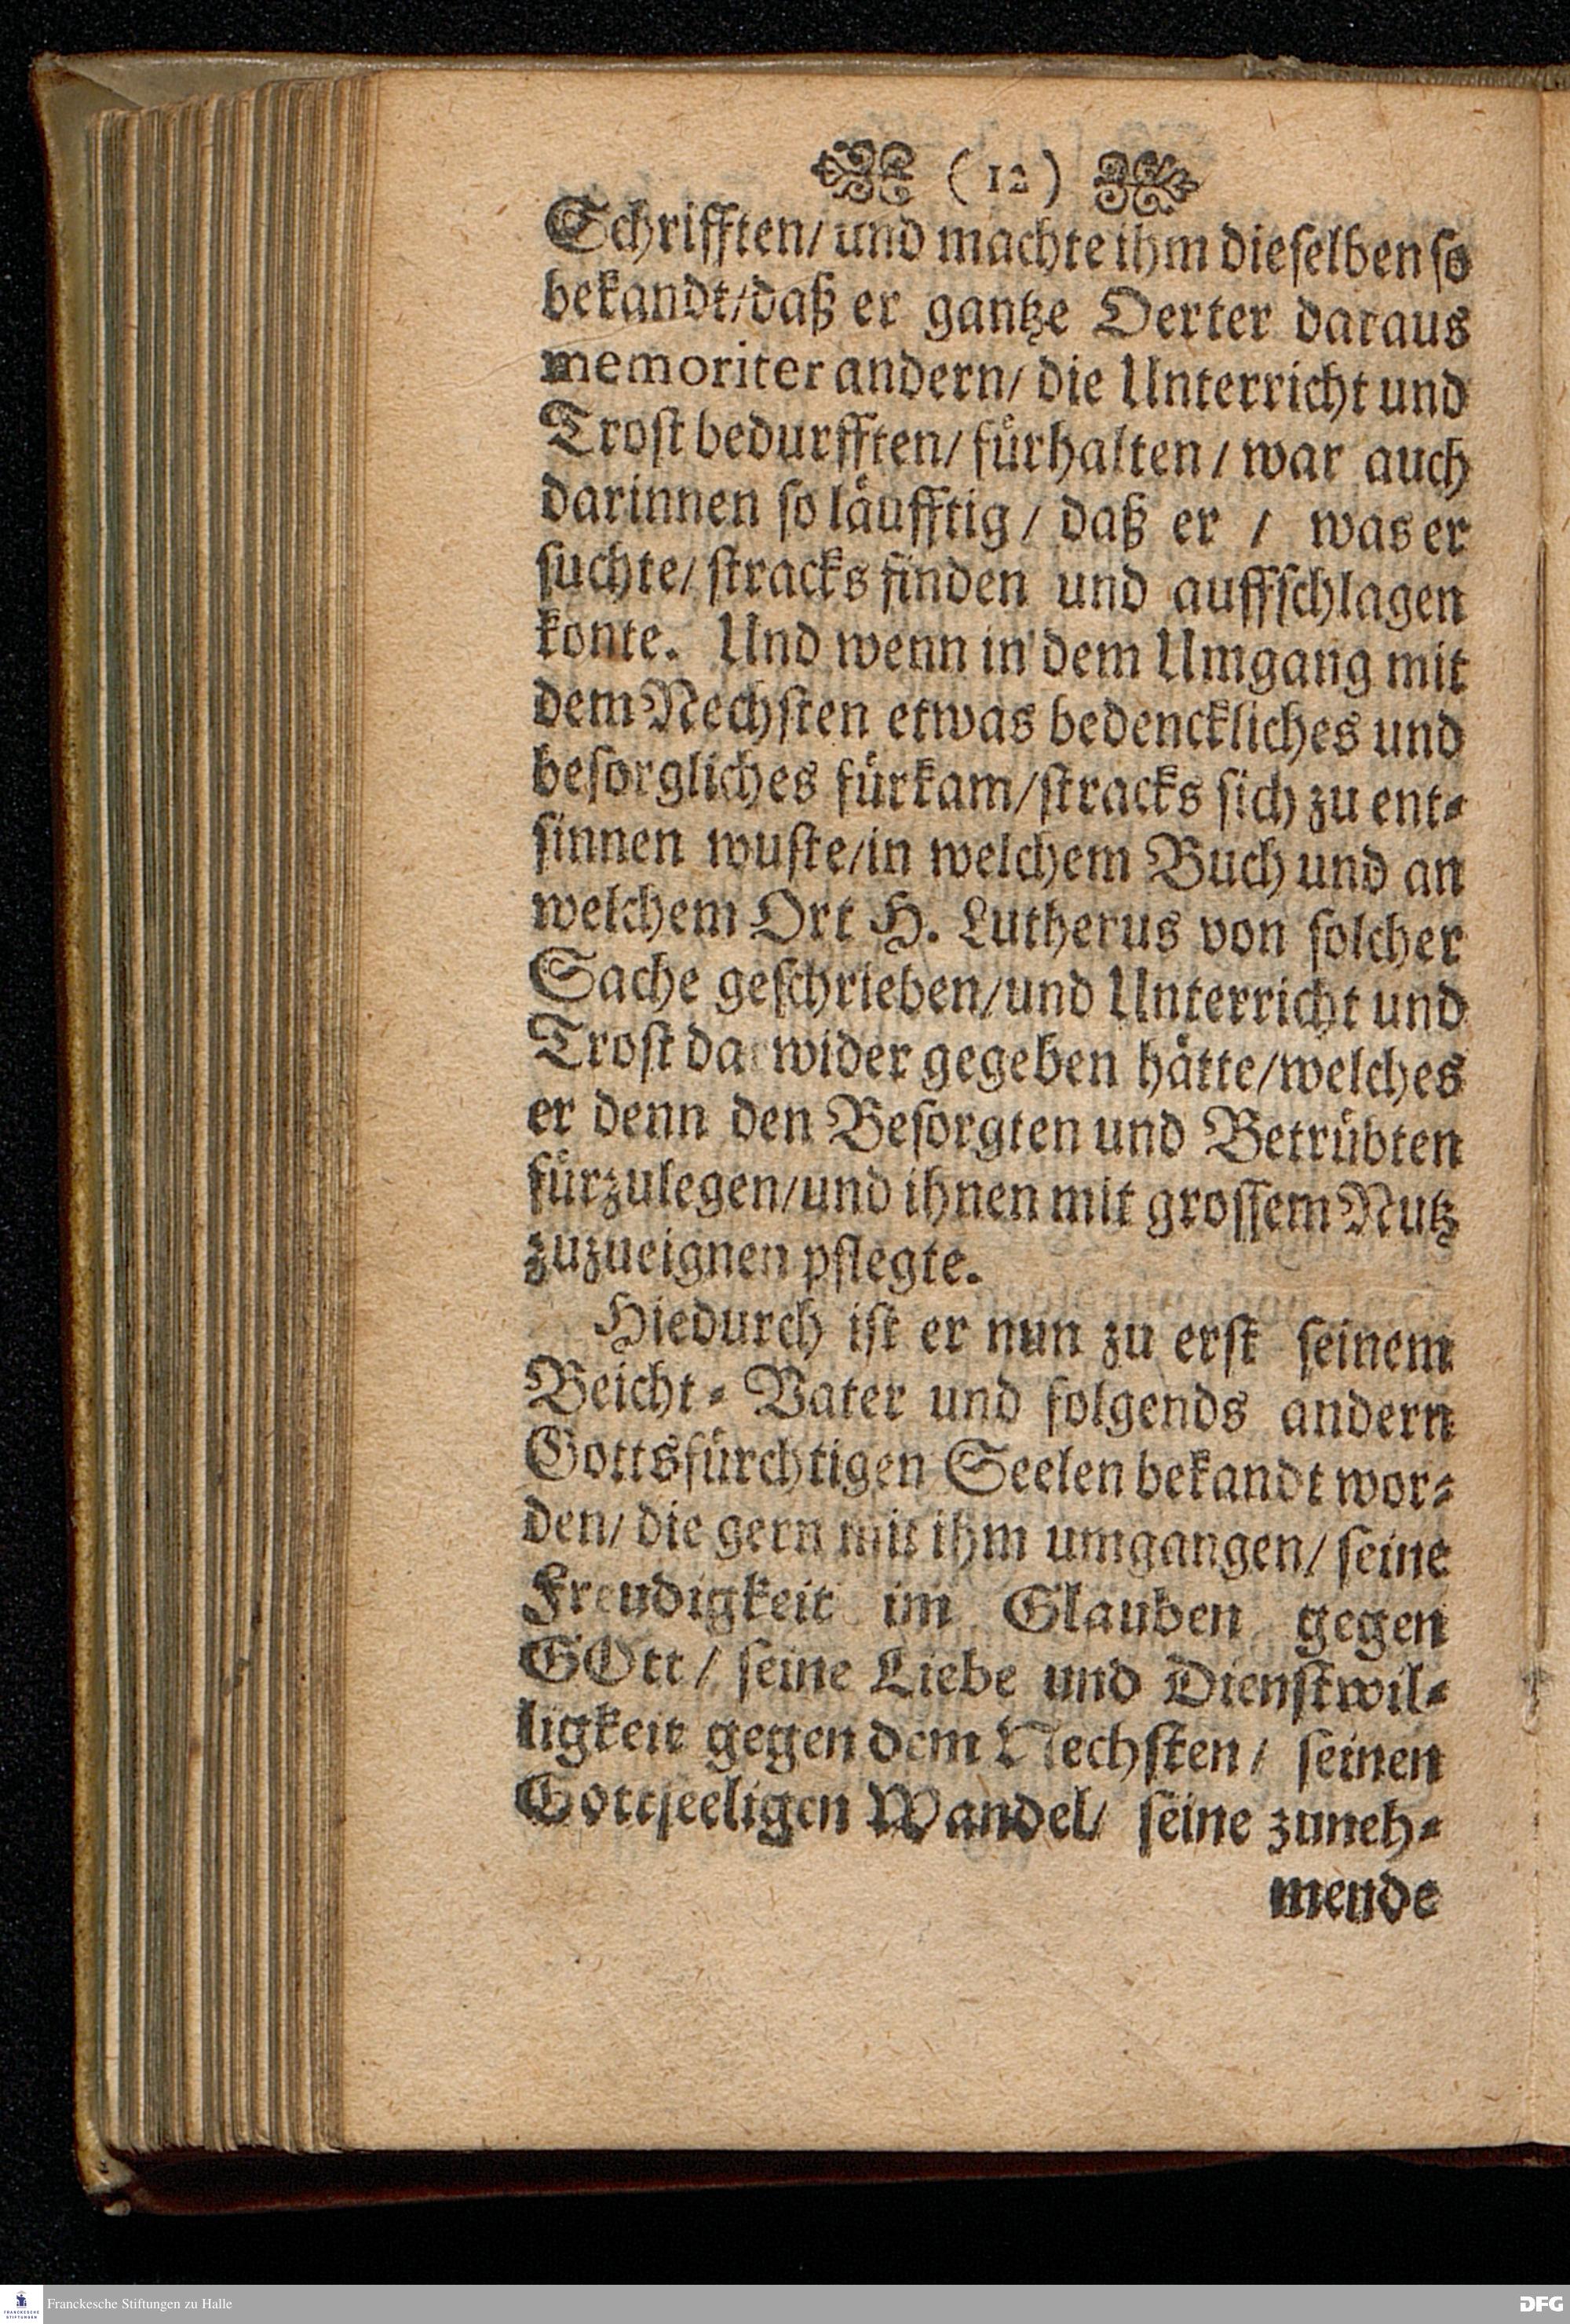 (12)
Schrifften/ und machte ihm dieselben so
bekandt/daß er gantze Oerter daraus
memoriter andern/ die Unterricht und
Trost bedurfften/ fürhalten/ war auch
darinnen so läufftig/ daß er / was er
suchte/ stracks finden und auffschlagen
konte. Und wenn in dem Umgang mit
dem Nechsten etwas bedenckliches und
besorgliches fürkam/stracks sich zu ent-
sinnen wuste/in welchem Buch und an
welchem Ort H. Lutherus von solcher
Sache geschrieben/und Unterricht und
Trost darwider gegeben hätte/welches
er denn den Besorgten und Betrübten
fürzulegen/und ihnen mit grossem Nutz
zuzueignen pflegte.
Hiedurch ist er nun zu erst seinem
Beicht-Vater und folgends andern
Gottsfürchtigen Seelen bekandt wor-
den/ die gern mit ihm umgangen/ seine
Freudigkeit im Glauben gegen
GOtt/ seine Liebe und Dienstwil-
ligkeit gegen dem Nechsten/ seinen
Gottseeligen Wandel/ seine zuneh-
mende
FRANCKESCHE STIFTUNGEN
Franckesche Stiftungen zu Halle
DFG